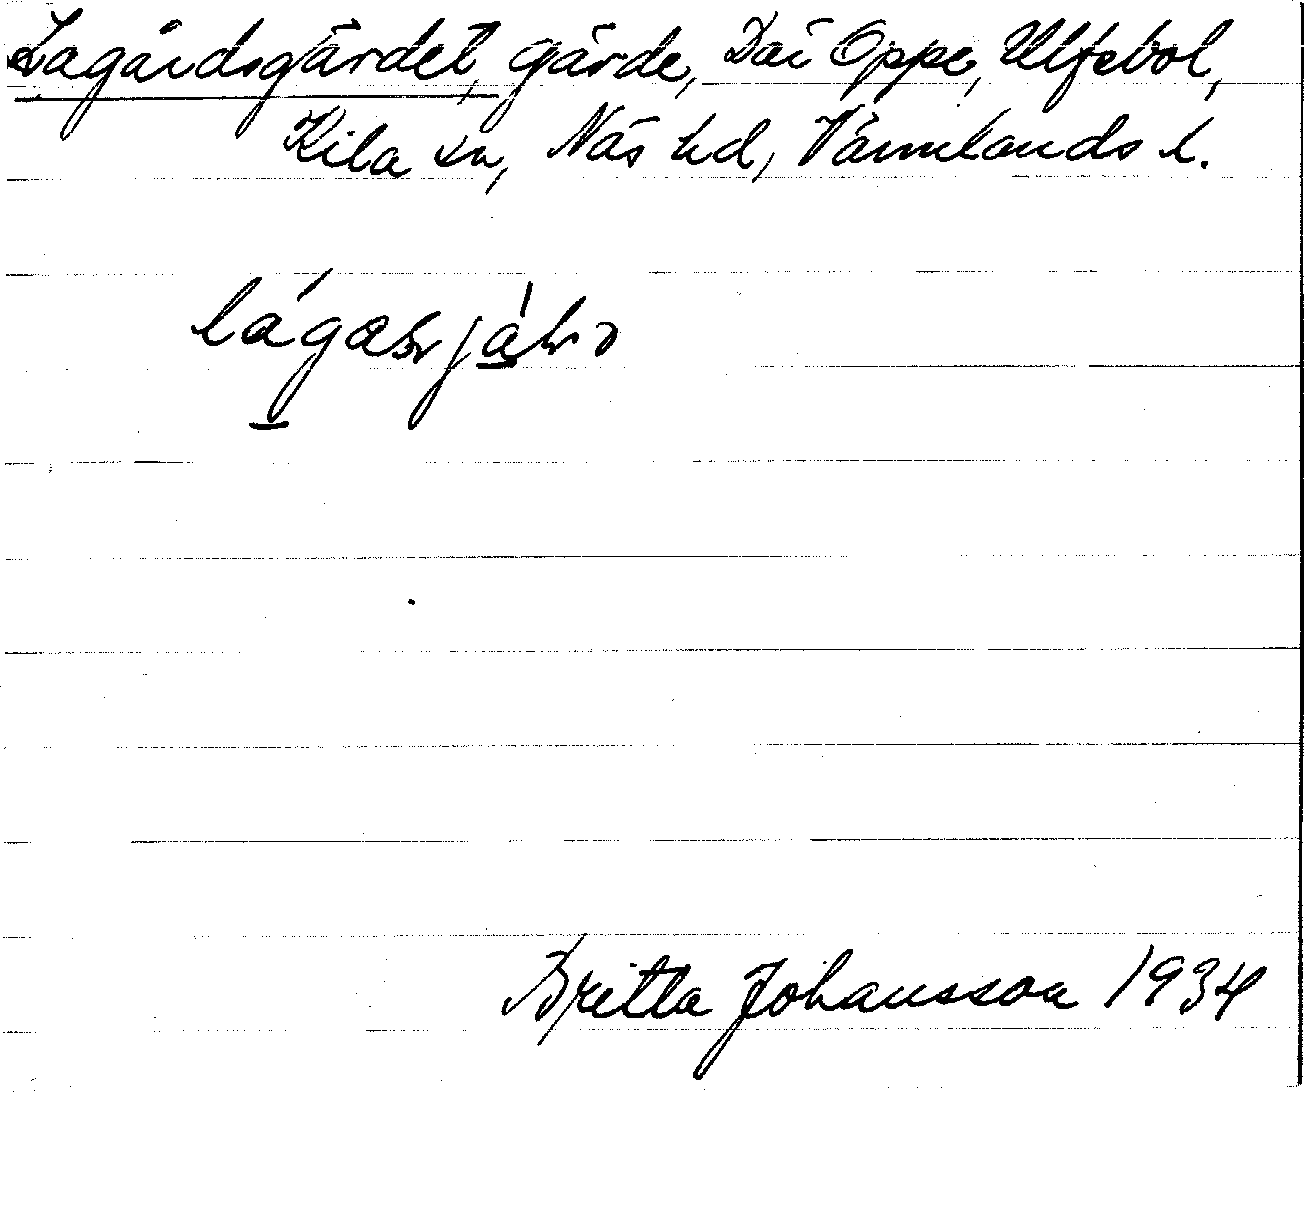 Lagårdsgärdet, gärde, Där Oppe, Ulfebol,
Kila sn, Näs hd, Värmlands l.
Britta Johansson 1934